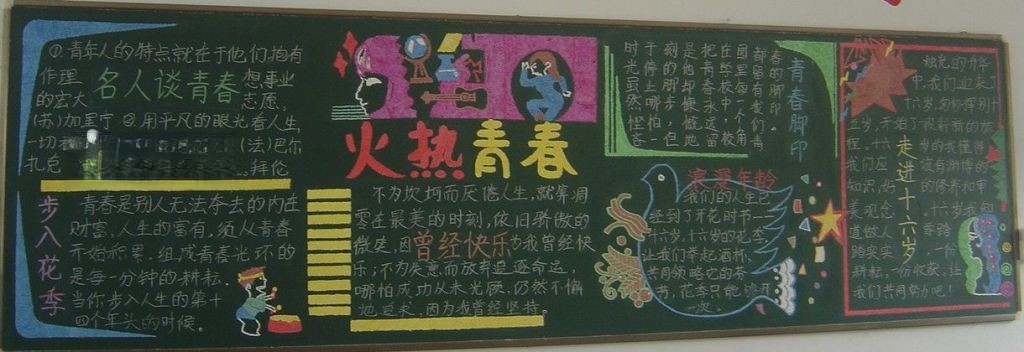 ①.青年人的特点就在于他们抱有
作理
想事业
的宏大
志愿。
名人谈青春
(苏)加里宁 ②用平凡的眼光看人生
一切
(法)巴尔
扎克
拜伦
步入花季
青春是别人无法夺去的内在
财富、人生的富有,须从青春
开始积累。组成青春光环的
是每一分钟的耕耘,
当你步入人生的第十
四个年头的时候。
火热青春
不为坎坷而厌倦人生,就算凋
零在最美的时刻,依旧骄傲的
微笑,因
曾经快乐
为我曾经快
乐;不为失意而放弃追逐命运,
哪怕成功从未光顾,仍然不懈
地追求,因为我曾经坚持。
青春脚印
春的脚印。
都留有我们青
园里每一个角
在母校中,校
把青春永远留
是他却慷慨地
刻的脚步,但
于停上哪怕一
时光虽然
浪漫年龄
我们的人生已
经到了花季时节—
十六岁,十六岁的花季
让我们举起酒杯,
共同领略它的芬
芳,花季只能
一次。
走进十六岁
烛光的升华
中,我们迎来
十六岁,匆匆挥别十
五岁,开始了崭新的旅
程,十六
岁的我懂得
我们应
该有新的
知识,好
的修养和审
美观念,
十六岁我们
道做人
要踏
踏实实,一份
耕耘,一份收获,让
我们共同努力吧!